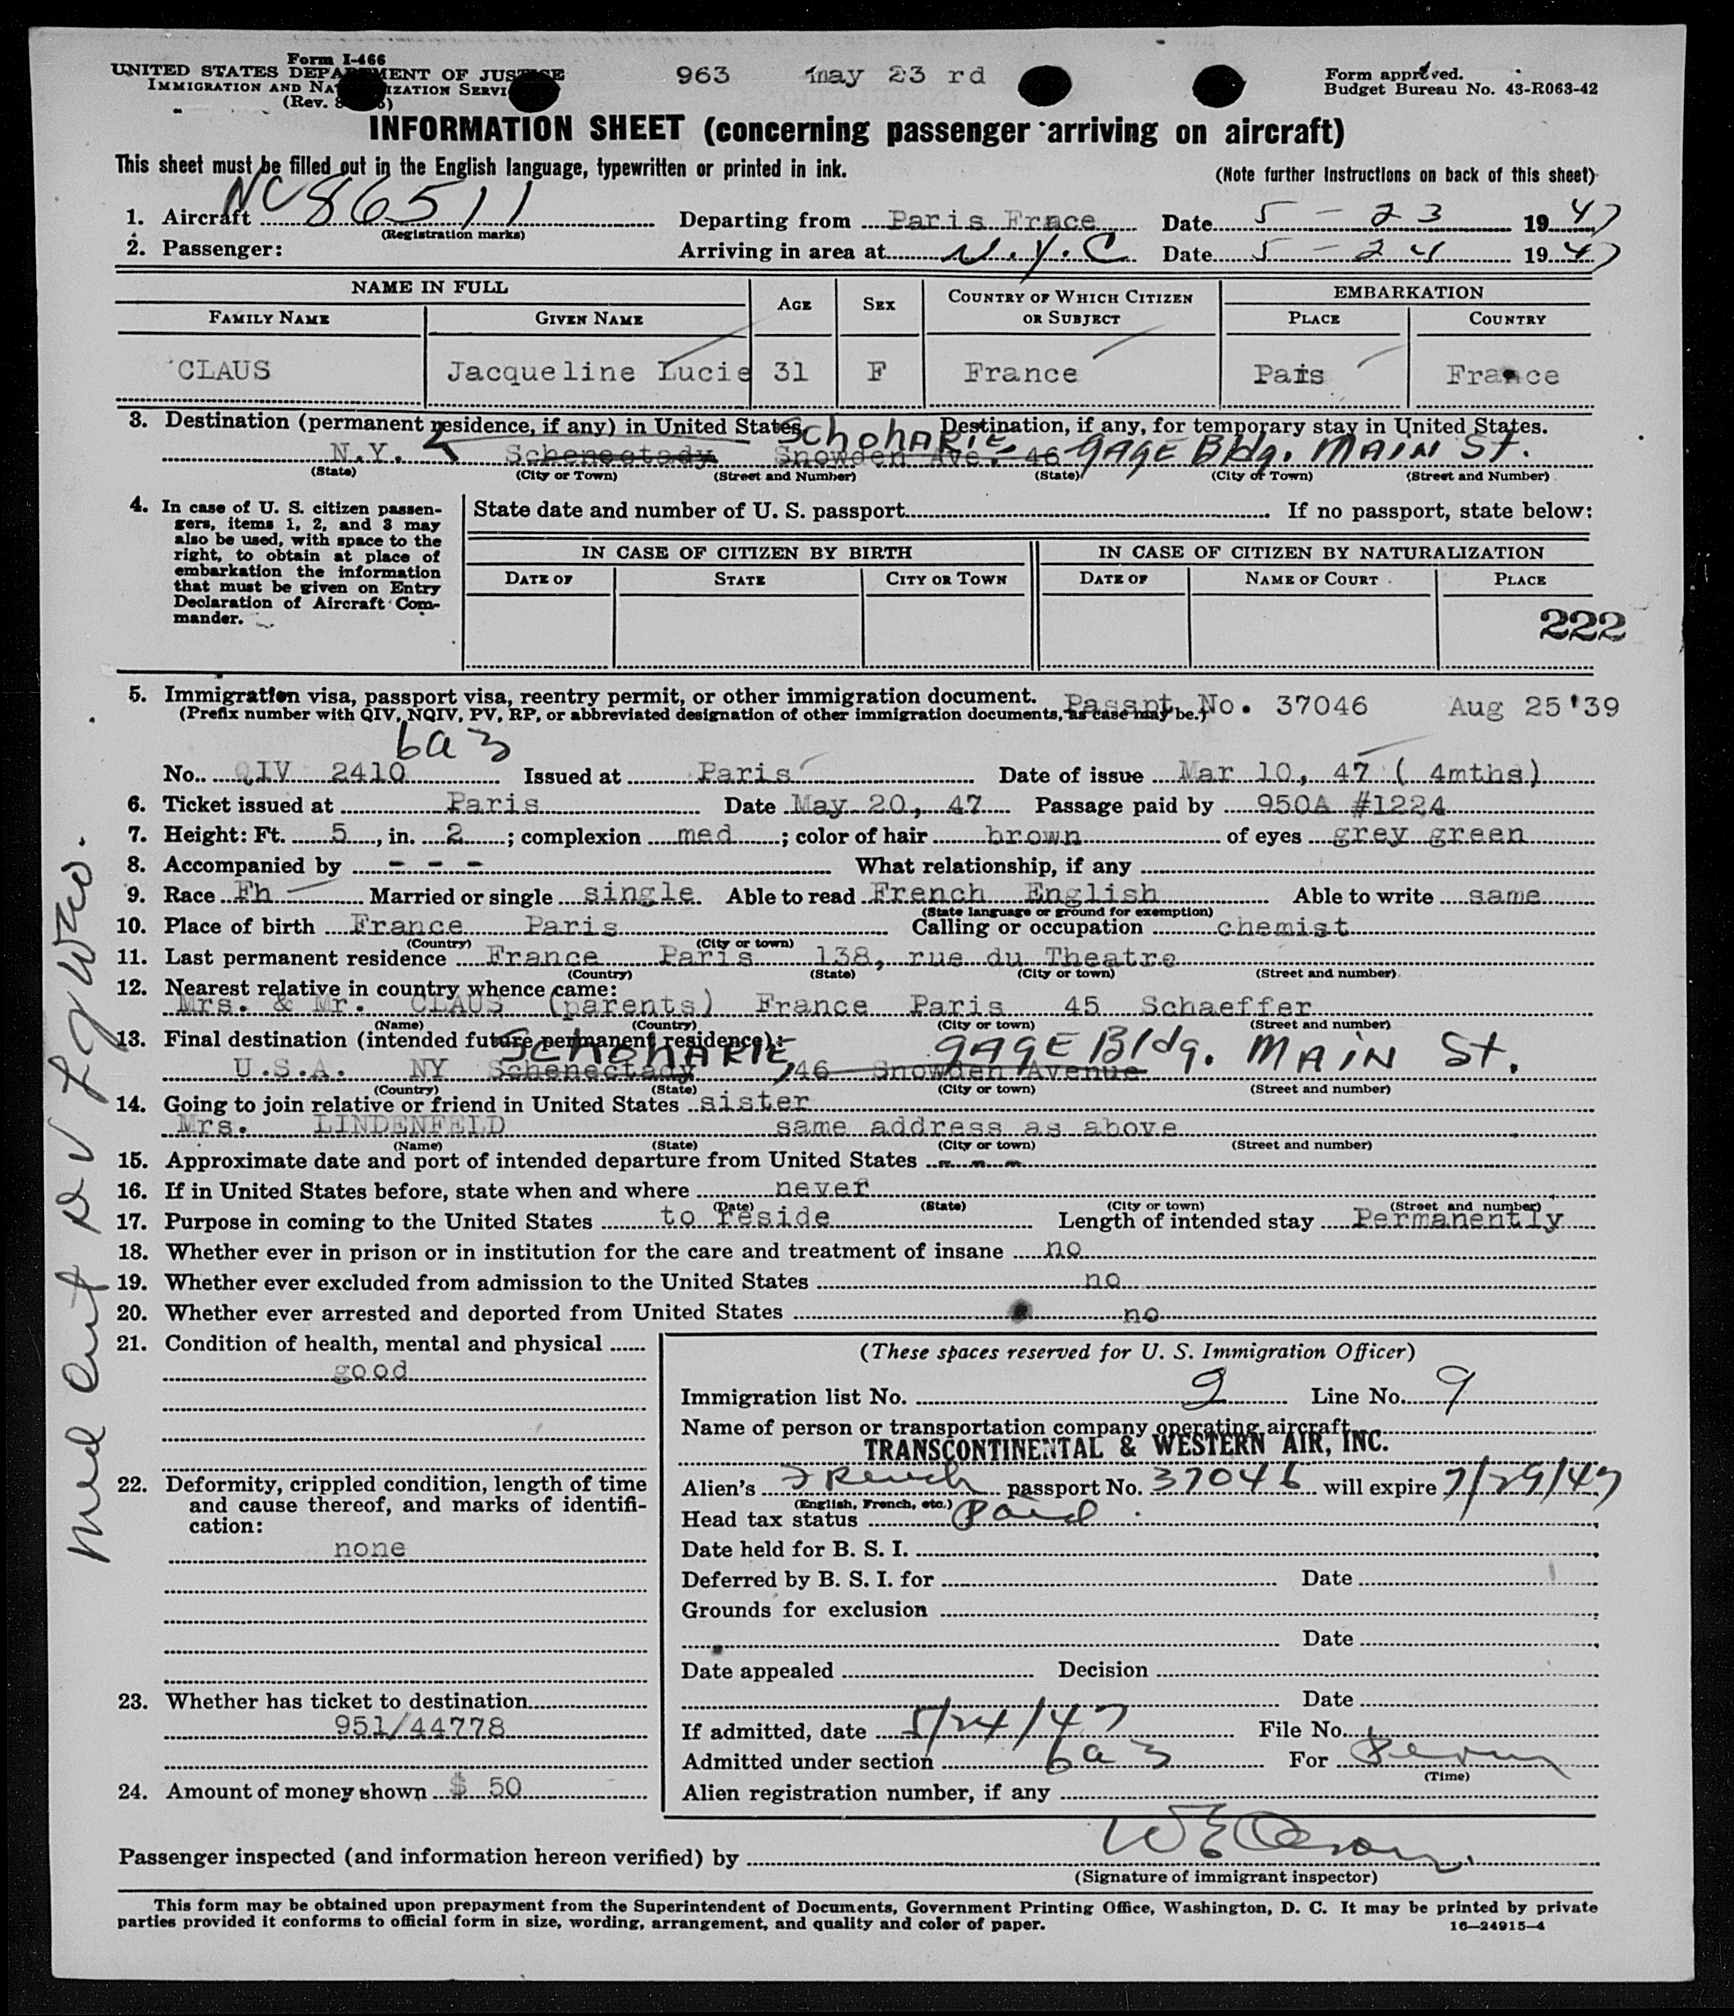 Form I-466
UNITED STATES DEPARTMENT OF JUSTICE
IMMIGRATION AND NATURALIZATION SERVICE
(Rev. 8
963 may 23 rd
Form approved.
Budget Bureau No. 43-R063-42
INFORMATION SHEET (concerning passenger arriving on aircraft)
This sheet must be filled out in the English language, typewritten or printed in ink.
(Note further instructions on back of this sheet)
1. Aircraft NC 86511 Departing from Paris Frnce Date 5 - 23 1947
(Registration marks)
2. Passenger: Arriving in area at N.Y.C Date 5 - 24 1947
NAME IN FULL AGE SEX COUNTRY OF WHICH CITIZEN OR SUBJECT EMBARKATION
FAMILY NAME GIVEN NAME PLACE COUNTRY
CLAUS Jacqueline Lucie 31 F France Pais France
3. Destination (permanent residence, if any) in United States Destination, if any, for temporary stay in United States.
N.Y. Schenectady Snowden Ave. 46 SCHOHARIE GAGE Bldg. MAIN St.
(State) (City or Town) (Street and Number) (State) (City or Town) (Street and Number)
4. In case of U. S. citizen passen-
gers, items 1, 2, and 3 may
also be used, with space to the
right, to obtain at place of
embarkation the information
that must be given on Entry
Declaration of Aircraft Com-
mander.
State date and number of U. S. passport If no passport, state below:
IN CASE OF CITIZEN BY BIRTH IN CASE OF CITIZEN BY NATURALIZATION
DATE OF STATE CITY OR TOWN DATE OF NAME OF COURT PLACE
222
5. Immigration visa, passport visa, reentry permit, or other immigration document. Passpt No. 37046 Aug 25'39
(Prefix number with QIV, NQIV, PV, RP, or abbreviated designation of other immigration documents, as case may be.)
6a3
No. QIV 2410 Issued at Paris Date of issue Mar 10, 47 ( 4mths)
6. Ticket issued at Paris Date May 20, 47 Passage paid by 950A #1224
7. Height: Ft. 5, in. 2; complexion med; color of hair brown of eyes grey green
8. Accompanied by - - - What relationship, if any
9. Race Fh Married or single single Able to read French English Able to write same
(State language or ground for exemption)
10. Place of birth France Paris Calling or occupation chemist
(Country) (City or town)
11. Last permanent residence France Paris 138, rue du Theatre
(Country) (State) (City or town) (Street and number)
12. Nearest relative in country whence came:
Mrs. & Mr. CLAUS (parents) France Paris 45 Schaeffer
(Name) (Country) (City or town) (Street and number)
13. Final destination (intended future permanent residence):
SCHOHARIE, GAGE Bldg. MAIN St.
U.S.A. NY Schenectady 46 Snowden Avenue
(Country) (State) (City or town) (Street and number)
14. Going to join relative or friend in United States sister
Mrs. LINDENFELD same address as above
(Name) (State) (City or town) (Street and number)
15. Approximate date and port of intended departure from United States - - -
16. If in United States before, state when and where never
(Date) (State) (City or town) (Street and number)
17. Purpose in coming to the United States to reside Length of intended stay Permanently
18. Whether ever in prison or in institution for the care and treatment of insane no
19. Whether ever excluded from admission to the United States no
20. Whether ever arrested and deported from United States no
21. Condition of health, mental and physical
good
22. Deformity, crippled condition, length of time
and cause thereof, and marks of identifi-
cation:
none
23. Whether has ticket to destination
951/44778
24. Amount of money shown $ 50
(These spaces reserved for U. S. Immigration Officer)
Immigration list No. 2 Line No. 9
Name of person or transportation company operating aircraft
TRANSCONTINENTAL & WESTERN AIR, INC.
Alien's French passport No. 37046 will expire 7/29/47
(English, French, etc.)
Head tax status Paid
Date held for B. S. I.
Deferred by B. S. I. for Date
Grounds for exclusion
Date
Date appealed Decision
Date
If admitted, date 5/24/47 File No.
Admitted under section 6a3 For Perm
(Time)
Alien registration number, if any
Passenger inspected (and information hereon verified) by
(Signature of immigrant inspector)
This form may be obtained upon prepayment from the Superintendent of Documents, Government Printing Office, Washington, D. C. It may be printed by private
parties provided it conforms to official form in size, wording, arrangement, and quality and color of paper. 16—24915-4
med cert